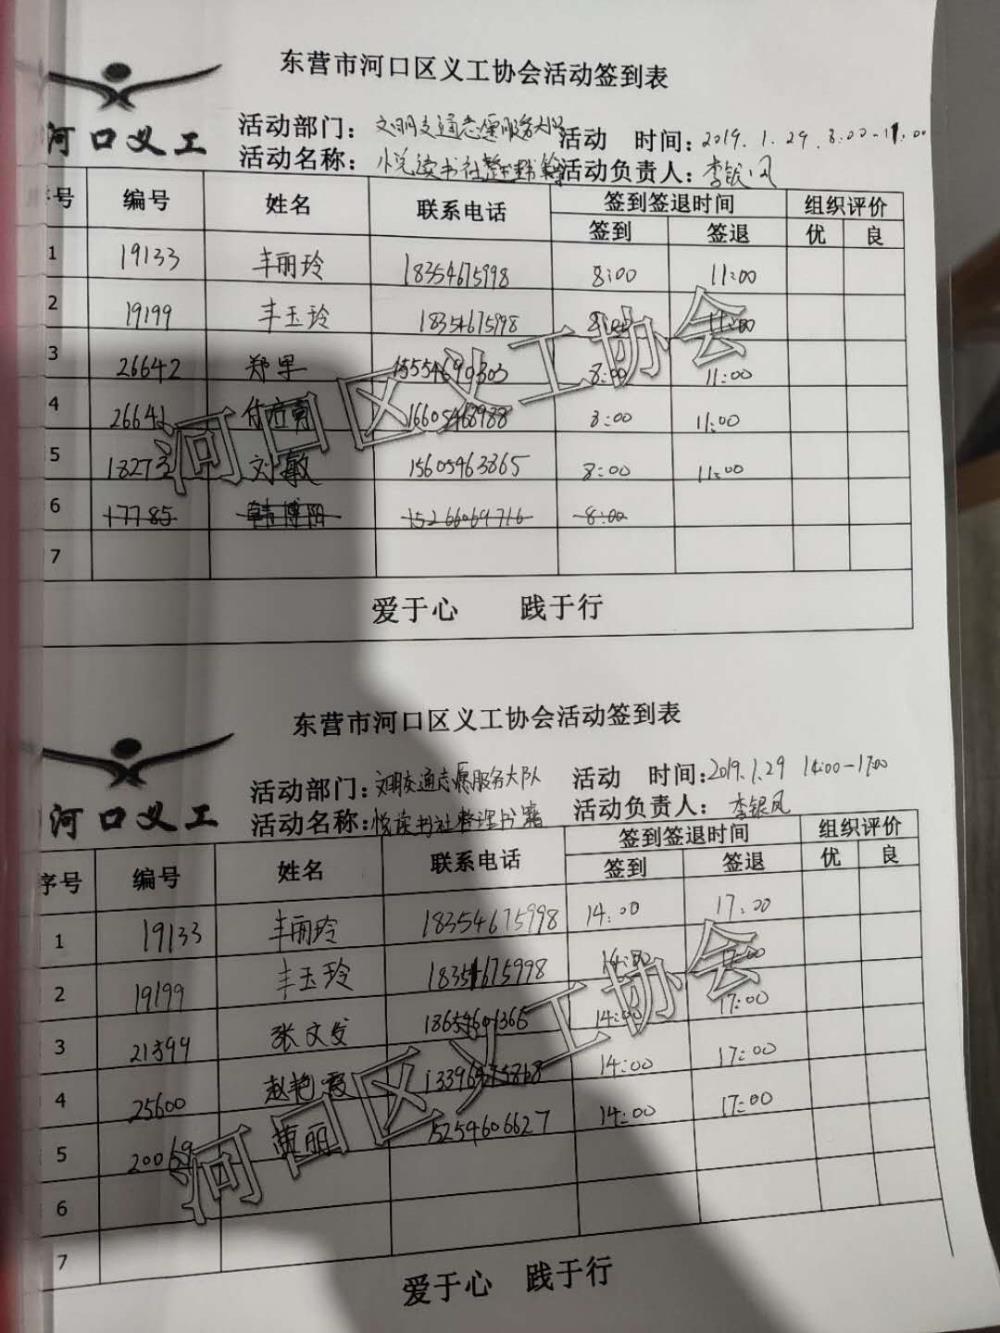 东营市河口区义工协会活动签到表
河口义工
活动部门：文明交通志愿服务大队 活动 时间：2019.1.29 8:00-11:00
活动名称：悦读书社整理书籍 活动负责人：李银凤
序号 编号 姓名 联系电话 签到签退时间 组织评价
签到 签退 优 良
1 19133 丰丽玲 18354675998 8:00 11:00
2 19199 丰玉玲 18354675998 8:00 11:00
3 26642 郑军 15554690303 8:00 11:00
4 16605468988 8:00 11:00
5 18273 刘敏 15605463865 8:00 11:00
6 17785 韩博阳 15266069716 8:00
7
爱于心 践于行
河口区义工协会
东营市河口区义工协会活动签到表
河口义工
活动部门：文明交通志愿服务大队 活动 时间：2019.1.29 14:00-17:00
活动名称：悦读书社整理书籍 活动负责人：李银凤
序号 编号 姓名 联系电话 签到签退时间 组织评价
签到 签退 优 良
1 19133 丰丽玲 18354675998 14:00 17:00
2 19199 丰玉玲 18354675998 14:00 17:00
3 21399 张文发 14:00 17:00
4 25600 赵艳霞 14:00 17:00
5 20069 黄丽 15254606627 14:00 17:00
6
7
爱于心 践于行
河口区义工协会